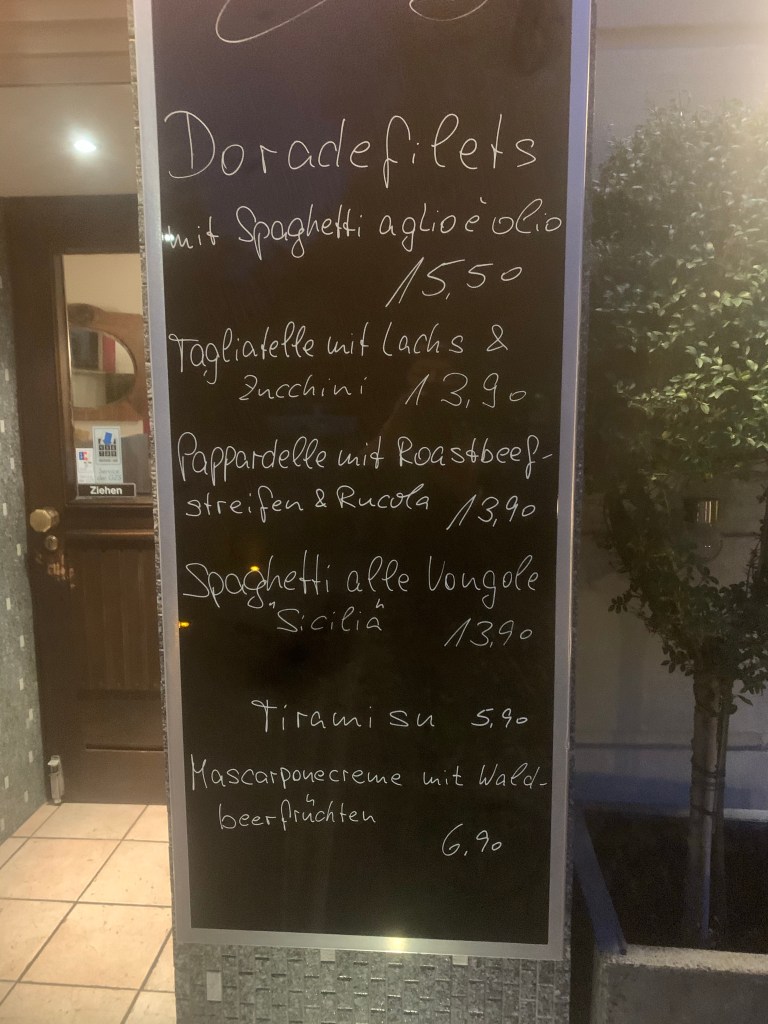 Doradefilets
mit Spaghetti aglio è olio
15,50
Tagliatelle mit Lachs &
Zucchini 13,90
Pappardelle mit Roastbeef-
streifen & Rucola 13,90
Spaghetti alle Vongole
"Sicilia" 13,90
Tiramisu 5,90
Mascarponecreme mit Wald-
beerfrüchten
6,90
Ziehen